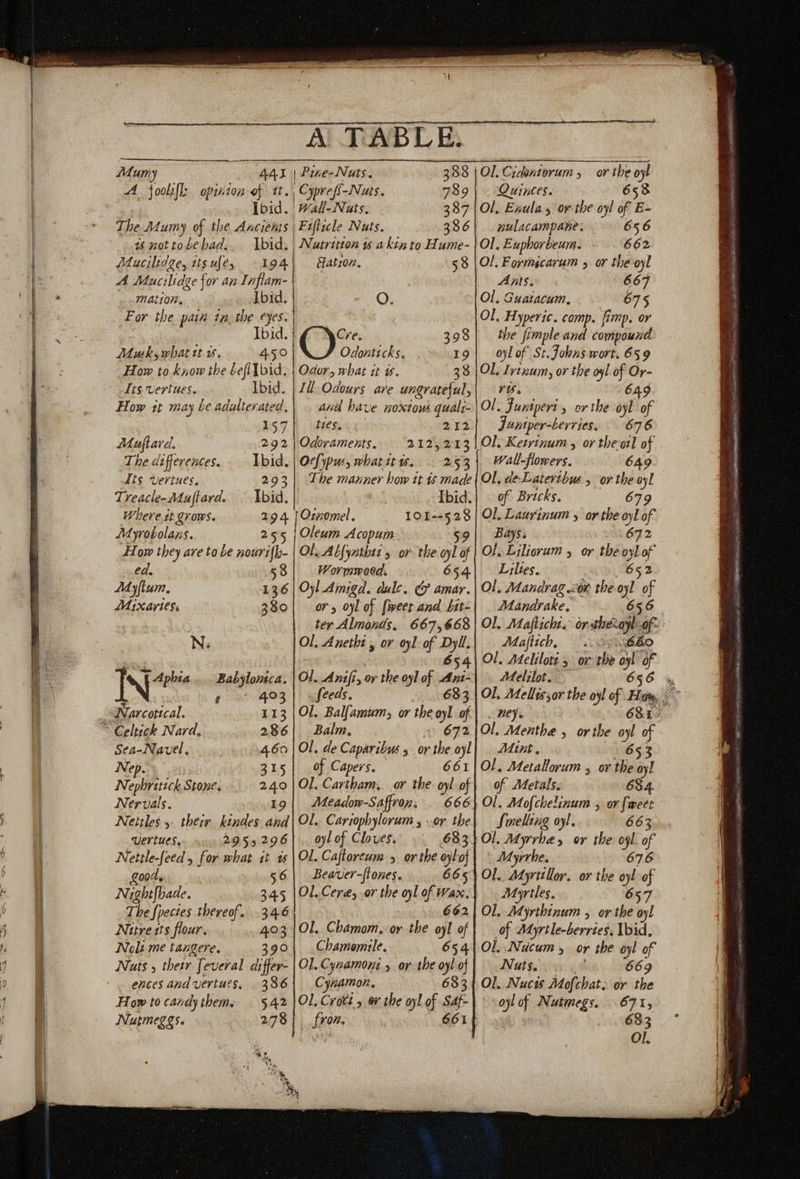 A TABLE.
Mumy 441
A foolish opinion of it.
Ibid.
The Mumy of the Ancients
is not to be had. Ibid.
Mucilidge, its use, 194
A Mucilidge for an Inflam-
mation, Ibid.
For the pain in the eyes.
Ibid.
Musk, what it is. 450
How to know the best Ibid.
Its vertues. Ibid.
How it may be adulterated.
157
Mustard. 292
The differences. Ibid.
Its vertues. 293
Treacle-Mustard. Ibid.
Where it grows. 294
Myrobolans. 255
How they are to be nourish-
ed. 58
Mystum. 136
Mixaries. 380
N.
Naphta Babylonica.
403
Narcotical. 113
Celtick Nard. 286
Sea-Navel. 460
Nep. 315
Nephritick Stone. 240
Nervals. 19
Nettles, their kindes and
vertues, 295, 296
Nettle-seed, for what it is
good. 56
Nightshade. 345
The species thereof. 346
Nitre its flour. 403
Noli me tangere. 390
Nuts, their several differ-
ences and vertues. 386
How to candy them. 542
Nutmeggs. 278
Pine-Nuts. 388
Cypress-Nuts. 789
Wall-Nuts. 387
Fisticle Nuts. 386
Nutrition is a kin to Hume-
ctation. 58
O.
Ocre. 398
Odonticks. 19
Odor, what it is. 38
Ill Odours are ungrateful,
and have noxious quali-
ties. 212
Odoraments. 212, 213
Oesypus, what it is. 253
The manner how it is made
Ibid.
Oinomel. 101--528
Oleum Acopum 59
Ol. Absynthii, or the oyl of
Wormwood. 654
Oyl Amigd. dulc. & amar.
or, oyl of sweet and bit-
ter Almonds. 667, 668
Ol. Anethi, or oyl of Dyll.
654
Ol. Anisi, or the oyl of Ani-
seeds. 683
Ol. Balsamum, or the oyl of
Balm. 672
Ol. de Caparibus, or the oyl
of Capers. 661
Ol. Cartham. or the oyl of
Meadow-Saffron. 666
Ol. Cariophylorum, or the
oyl of Cloves. 683
Ol. Castoreum, or the oyl of
Beaver-stones. 665
Ol. Ceræ, or the oyl of Wax.
662
Ol. Chamom. or the oyl of
Chamomile. 654
Ol. Cynamoni, or the oyl of
Cynamon. 683
Ol. Croci, or the oyl of Saf-
fron. 661
Ol. Cidoniorum, or the oyl
Quinces. 658
Ol. Enula, or the oyl of E-
nulacampane. 656
Ol. Euphorbeum. 662
Ol. Formicarum, or the oyl
Ants. 667
Ol. Guaiacum. 675
Ol. Hyperic. comp. simp. or
the simple and compound
oyl of St. Johns wort. 659
Ol. Irinum, or the oyl of Or-
ris. 649
Ol. Juniperi, or the oyl of
Juniper-berries. 676
Ol. Keirinum, or the oil of
Wall-flowers. 649
Ol. de Lateribus, or the oyl
of Bricks. 679
Ol. Laurinum, or the oyl of
Bays. 672
Ol. Liliorum, or the oyl of
Lilies. 652
Ol. Mandrag. or the oyl of
Mandrake. 656
Ol. Mastichi. or the oyl of
Mastich. 660
Ol. Meliloti, or the oyl of
Melilot. 656
Ol. Mellis, or the oyl of Ho-
ney. 681
Ol. Menthe, or the oyl of
Mint. 653
Ol. Metallorum, or the oyl
of Metals. 684
Ol. Moschelinum, or sweet
smelling oyl. 663
Ol. Myrrhæ, or the oyl of
Myrrhe. 676
Ol. Myrtillor. or the oyl of
Myrtles. 657
Ol. Myrthinum, or the oyl
of Myrtle-berries. Ibid.
Ol. Nucum, or the oyl of
Nuts. 669
Ol. Nucis Moschat. or the
oyl of Nutmegs. 671,
683
Ol.